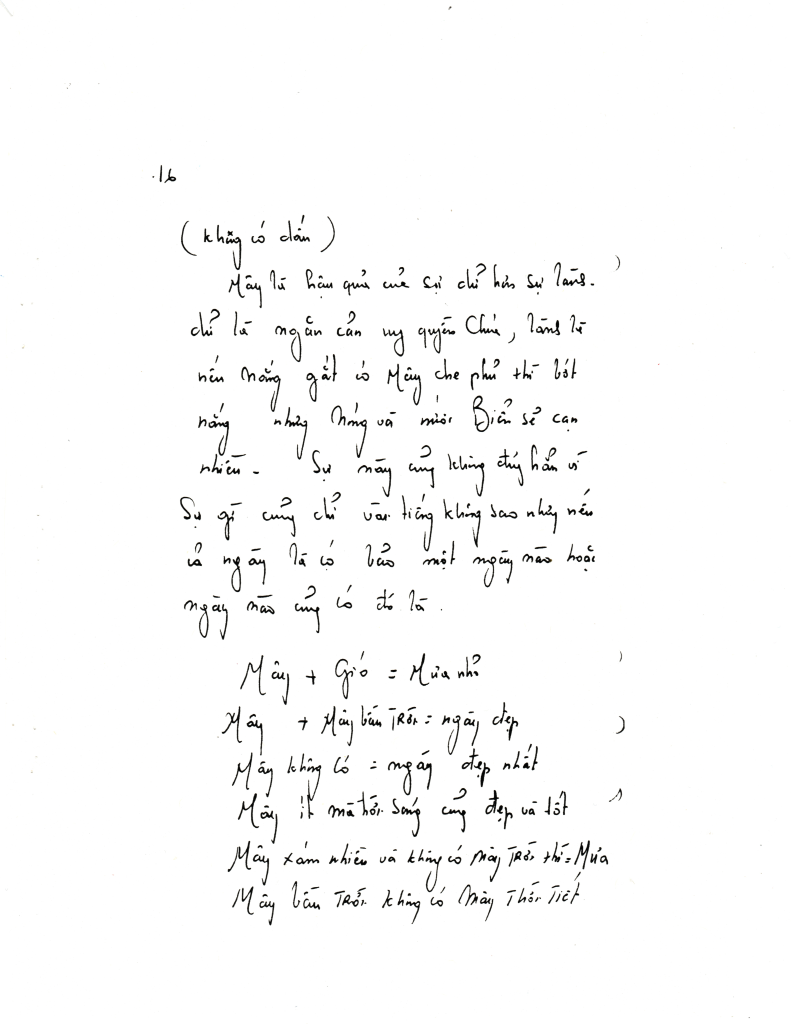 .16
(không có dấu)
Mây là hậu quả của sự dữ hơn sự lành.
dữ là ngăn cản uy quyền Chúa, lành là
nếu nắng gắt có Mây che phủ thì bớt
nắng nhưng nóng và nước Biển sẽ cạn
nhiều. Sự này cũng không đúng hẳn vì
Sự gì cũng chỉ vài tiếng không sao nhưng nếu
cả ngày là có bảo một ngày nào hoặc
ngày nào cũng có đó là.
Mây + Gió = Mưa nhỏ
Mây + Mây bầu Trời = ngày đẹp
Mây không có = ngày đẹp nhất
Mây ít mà trời sáng cũng đẹp và tốt
Mây xám nhiều và không có Mây Trời thì = Mưa
Mây bầu Trời không có Mây Thời Tiết